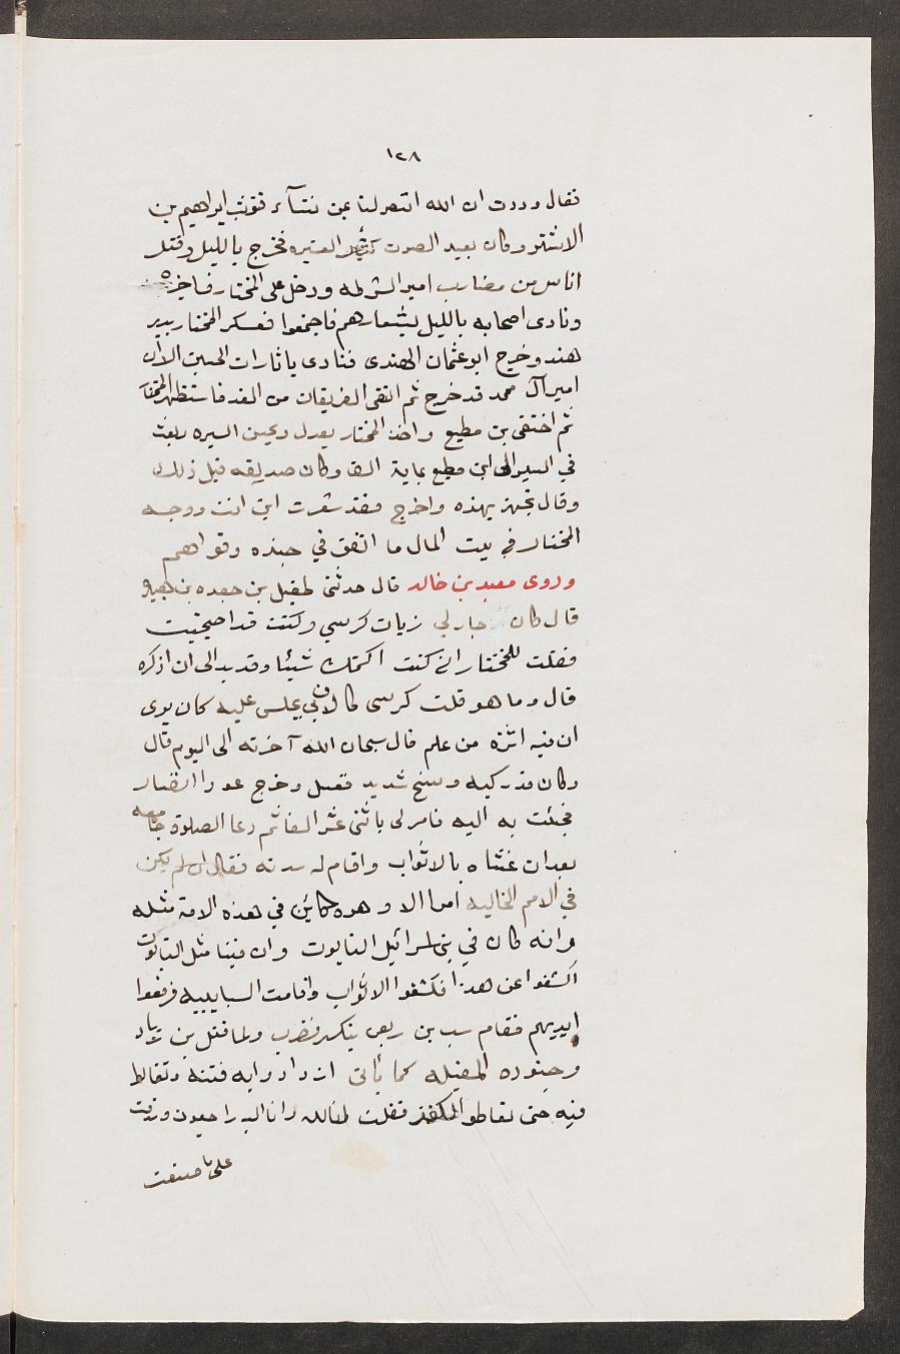 ١٢٨
فقال وددت ان الله انتصر لنا عن نشآء فوثب ابراهيم بن
الاشتر وكان بعيد الصوت كثير العشيره فخرج بالليل وقتل
اناس من مضارب امير الشرطه ودخل على المختار فاخبره
ونادى اصحابه بالليل بشعارهم فاجتمعوا فعسكر المختار بدير
هند وخرج ابو عثمان الهندى فنادى يا ثارات الحسين الا ان
امير آل محمد قد خرج ثم التقى الفريقان من الغد فاستظهر المختار
ثم اختفى بن مطيع واخذ المختار يعدل ويحسن السيره وبعث
في السر الى ابن مطيع بماية الف وكان صديقه قبل ذلك
وقال تجهز بهذه واخرج فقد شعرت اين انت ووجد
المختار في بيت المال ما انفق في جنده وقواهم
وروى معبد بن خالد قال حدثنى طفيل بن جعده بن هبيره
قال كان جار لي زيات كرسي وكنت قد احتجت
فقلت للمختار انى كنت اكتمك شيئا وقد بدا لى ان اذكره
قال وما هو قلت كرسى كان لابي يجلس عليه كان يرى
ان فيه اثره من علم قال سبحان الله آخرته الى اليوم قال
وكان قد ركبه وسخ شديد فغسل وخرج عودا نضار
فجئت به اليه فامر لى باثنى عشر الفا ثم دعا الصلوة جامعه
بعد ان غشاه بالاثواب واقام له سدنه فقال ان لم يكن
في الامم الخاليه امرا الا وهو كاين في هذه الامة مثله
وانه كان في بني اسرائيل التابوت وان فينا مثل التابوت
اكشفوا عن هذا فكشفوا الاثواب وقامت السبايبيه فرفعوا
ايديهم فقام سب بن ربعى ينكر فضرب ولما قتل بن زياد
وجنوده المقبله كما يأتى ازداد وابه فتنة وتغالط
فيه حتى تعاطو الكفر فقلت انا لله وانا اليه راجعون وندمت
على ما صنعت